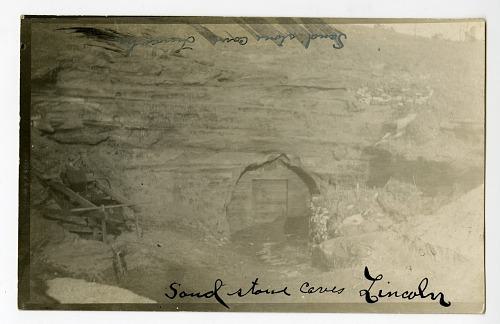 Sand stone caves Lincoln
Sand stone caves